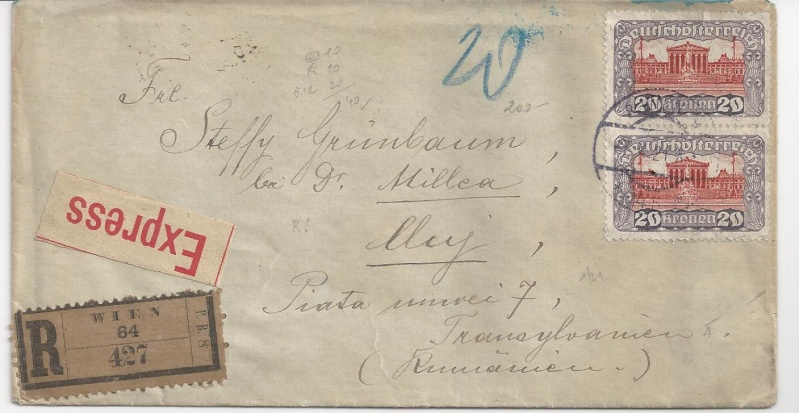 20
Frl.
Steffy Grünbaum,
bei Dr. Millea,
Cluj,
Piata unirei 7,
Transylvanien.
(Rumänien.)
Express
R
WIEN
64
427
Deutschösterreich
20 Kronen 20
Deutschösterreich
20 Kronen 20
10
R 10
20
40
200
R!